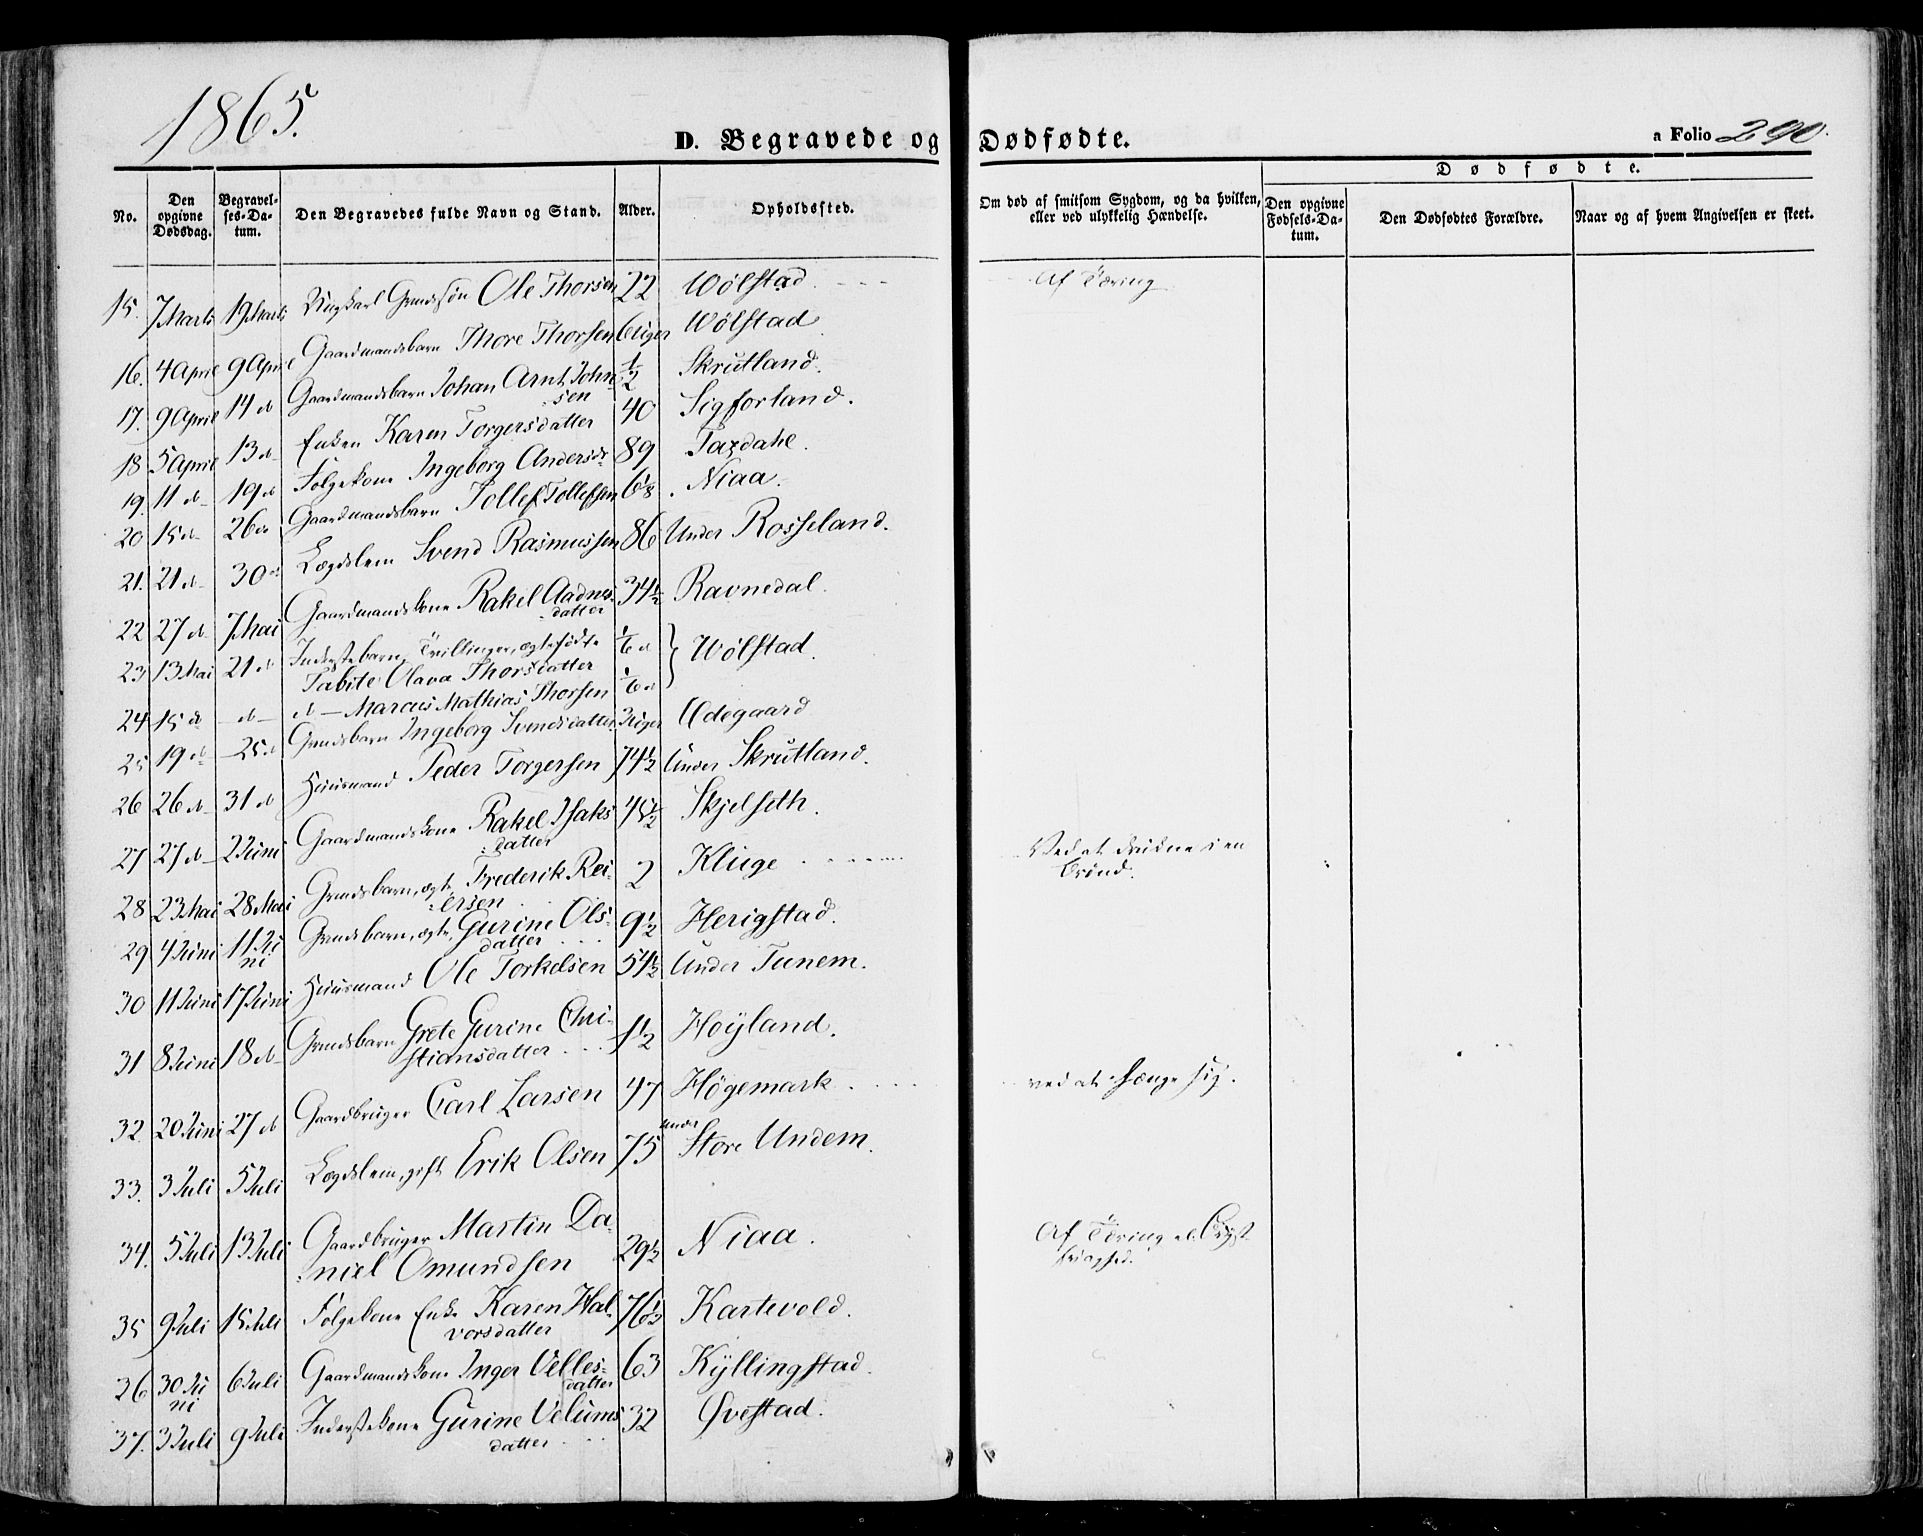 1865.
D. Begravede og Dødfødte.
a Folio 290.
No.
Den opgivne Dødsdag.
Begravelses-Datum.
Den Begravedes fulde Navn og Stand.
Alder.
Opholdssted.
Om død af smitsom Sygdom, og da hvilken, eller ved ulykkelig Hændelse.
Dødfødte.
Den opgivne Fødsels-Datum.
Den Dødfødtes Forældre.
Naar og af hvem Angivelsen er skeet.
15. 7 Marts 19 Marts Ungkarl Grmdssøn Ole Thorsen 22 Wølstad. Af Tæring
16. 4 April 9 April Gaardmandsbarn Thore Thorsen 6 Uger Wølstad
17. 9 April 14 do Gaardmandsbarn Johan Arnt Johnsen 1/2 Skrutland.
18 5 April 13 do Enken Karen Torgersdatter 40 Sigforland.
19 11 do 19 do Folgekone Ingeborg Andersdr 89 Taxdahl.
20 15 do 26 do Gaardmandsbarn Tollef Tollefsen 6 1/8 Niaa.
21. 21 do 30 do Lægdslem Svend Rasmussen 86 Under Rosseland.
22 27 do 7 Mai Gaardmandskone Rakel Aadnesdatter 34 1/2 Ravnedal.
23 13 Mai 21 do Inderstebarn, Tvillinger, ægtefødte 1/6 d } Wølstad.
Tabite Olava Thorsdatter
24 15 do do do Marcus Mathias Thorsen 1/6 d
25 19 do 25 do Grmdsbarn Ingeborg Svendsdatter 3 Uger Ødegaard
26 26 do 31 do Huusmand Peder Torgersen 74 1/2 Under Skrutland.
27 27 do 2 Juni Gaardmandskone Rakel Isaksdatter 45 1/2 Skjelseth.
28 23 Mai 28 Mai Grmdsbarn, ægte, Frederik Reiersen 2 Kluge Ved at drukne i en Brønd.
29 4 Juni 11 Juni Grmdsbarn, ægte, Gurine Olsdatter 9 1/2 Herigstad.
30 11 Juni 17 Juni Huusmand Ole Torkelsen 54 1/2 Under Tunem.
31 8 Juni 18 do Grmdsbarn Grete Gurine Christiansdatter 1 1/2 Hoÿland.
32. 20 Juni 27 do Gaardbruger Carl Larsen 47 Høgemark. ved at hænge sig.
33. 3 Juli 5 Juli Lægdslem, gift Erik Olsen 75 under Store Undem.
34. 5 Juli 13 Juli Gaardbruger Martin Daniel Omundsen 29 1/2 Niaa. Af Tæring el. Brystsvaghed.
35 9 Juli 15 Juli Folgekone Enke Karen Halvorsdatter 76 1/2 Kartevold.
36 30 Juni 6 Juli Gaardmandskone Inger Vellesdatter 63 Kÿllingstad.
37. 3 Juli 9 Juli Inderstekone Gurine Velumsdatter 32 Øvestad.